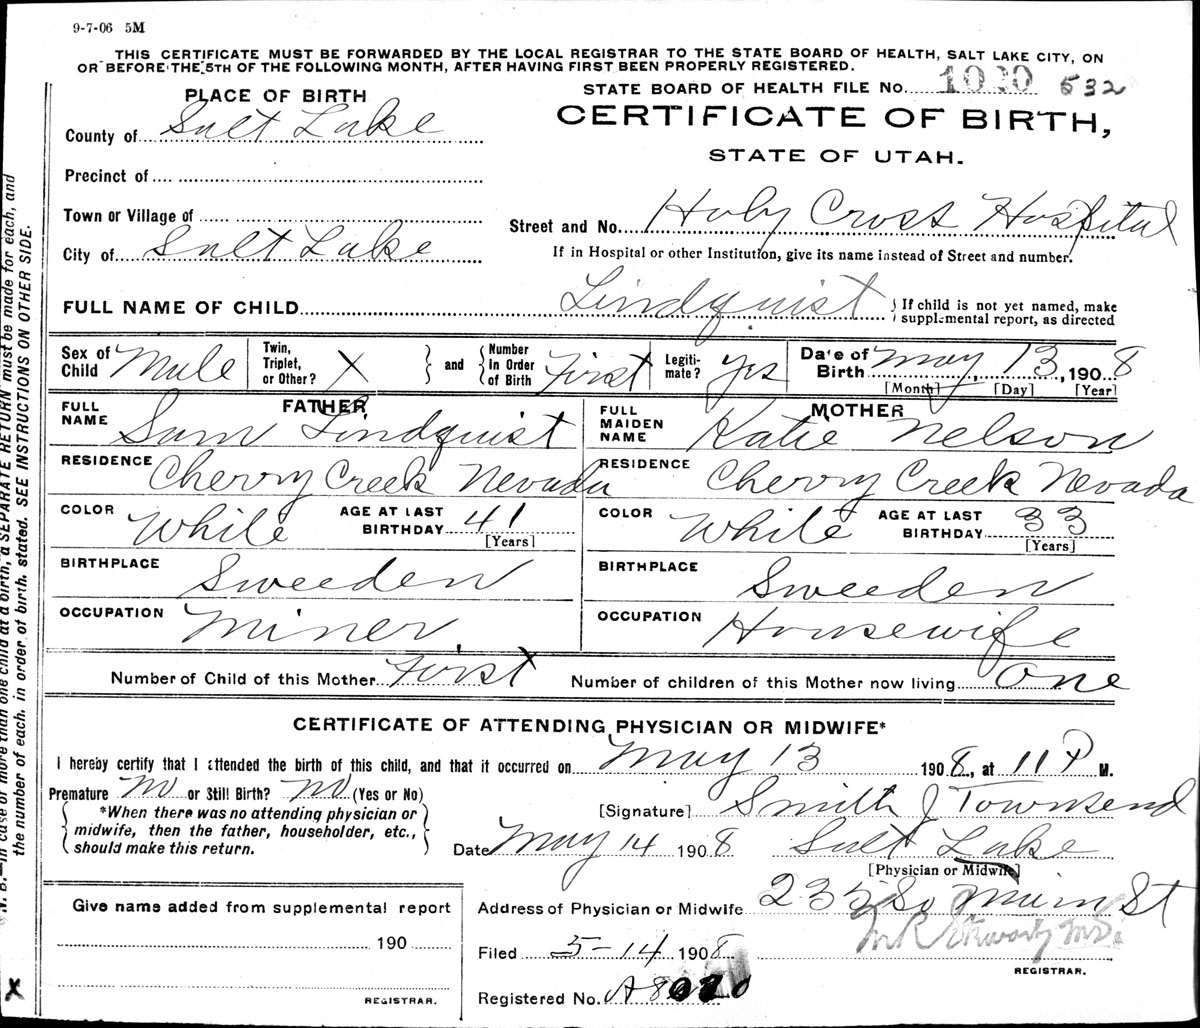 9-7-06 5M
THIS CERTIFICATE MUST BE FORWARDED BY THE LOCAL REGISTRAR TO THE STATE BOARD OF HEALTH, SALT LAKE CITY, ON
OR BEFORE THE 5TH OF THE FOLLOWING MONTH, AFTER HAVING FIRST BEEN PROPERLY REGISTERED.
STATE BOARD OF HEALTH FILE No. 1020 532
PLACE OF BIRTH
CERTIFICATE OF BIRTH,
STATE OF UTAH.
County of Salt Lake
Precinct of
Town or Village of
Street and No. Holy Cross Hospital
City of Salt Lake
If in Hospital or other Institution, give its name instead of Street and number.
FULL NAME OF CHILD Lindquist { If child is not yet named, make
supplemental report, as directed
Sex of Child Male Twin, Triplet, or Other? X } and { Number In Order of Birth First Legiti-mate? yes Date of Birth May 13, 1908
[Month] [Day] [Year]
FATHER
FULL NAME Sam Lindquist
RESIDENCE Cherry Creek Nevada
COLOR White AGE AT LAST BIRTHDAY 41
[Years]
BIRTHPLACE Sweeden
OCCUPATION Miner
MOTHER
FULL MAIDEN NAME Katie Nelson
RESIDENCE Cherry Creek Nevada
COLOR White AGE AT LAST BIRTHDAY 33
[Years]
BIRTHPLACE Sweeden
OCCUPATION Housewife
Number of Child of this Mother First Number of children of this Mother now living One
CERTIFICATE OF ATTENDING PHYSICIAN OR MIDWIFE*
I hereby certify that I attended the birth of this child, and that it occurred on May 13 1908, at 11 P M.
Premature No or Still Birth? No (Yes or No)
*When there was no attending physician or
midwife, then the father, householder, etc.,
should make this return.
[Signature] Smith J Townsend
Date May 14 1908 Salt Lake
[Physician or Midwife]
Address of Physician or Midwife 235 So Main St
Give name added from supplemental report
190
REGISTRAR.
Filed 5-14 1908
REGISTRAR.
Registered No. A8020
X
N. B.—In case of more than one child at a birth, a SEPARATE RETURN must be made for each, and
the number of each, in order of birth, stated. SEE INSTRUCTIONS ON OTHER SIDE.